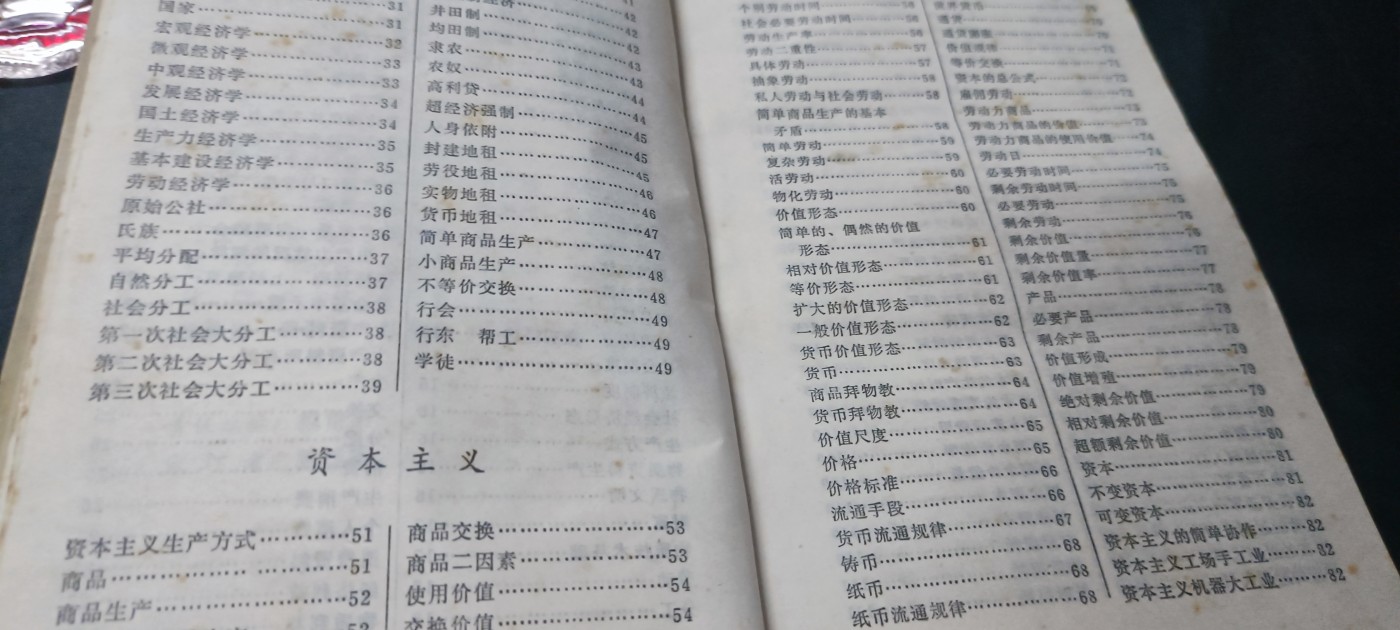 国家……31
宏观经济学……31
微观经济学……32
中观经济学……33
发展经济学……33
国土经济学……34
生产力经济学……34
基本建设经济学……35
劳动经济学……35
原始公社……36
氏族……36
平均分配……37
自然分工……37
社会分工……38
第一次社会大分工……38
第二次社会大分工……38
第三次社会大分工……39
井田制……42
均田制……42
隶农……43
农奴……43
高利贷……44
超经济强制……44
人身依附……45
封建地租……45
劳役地租……45
实物地租……46
货币地租……46
简单商品生产……47
小商品生产……47
不等价交换……48
行会……48
行东 帮工……49
学徒……49
资本主义
资本主义生产方式……51
商品……51
商品生产……52
商品交换……53
商品二因素……53
使用价值……54
交换价值……54
个别劳动时间……56
社会必要劳动时间……56
劳动生产率……56
劳动二重性……57
具体劳动……57
抽象劳动……58
私人劳动与社会劳动……58
简单商品生产的基本
矛盾……58
简单劳动……59
复杂劳动……59
活劳动……60
物化劳动……60
价值形态……60
简单的、偶然的价值
形态……61
相对价值形态……61
等价形态……61
扩大的价值形态……62
一般价值形态……62
货币价值形态……63
货币……63
商品拜物教……64
货币拜物教……64
价值尺度……65
价格……65
价格标准……66
流通手段……66
货币流通规律……67
铸币……68
纸币……68
纸币流通规律……68
价值规律
等价交换……71
资本的总公式……72
雇佣劳动……72
劳动力商品……73
劳动力商品的价值……73
劳动力商品的使用价值……74
劳动日……74
必要劳动时间……75
剩余劳动时间……75
必要劳动……75
剩余劳动……76
剩余价值……76
剩余价值量……77
剩余价值率……77
产品……78
必要产品……78
剩余产品……78
价值形成……79
价值增殖……79
绝对剩余价值……79
相对剩余价值……80
超额剩余价值……80
资本……81
不变资本……81
可变资本……82
资本主义的简单协作……82
资本主义工场手工业……82
资本主义机器大工业……82